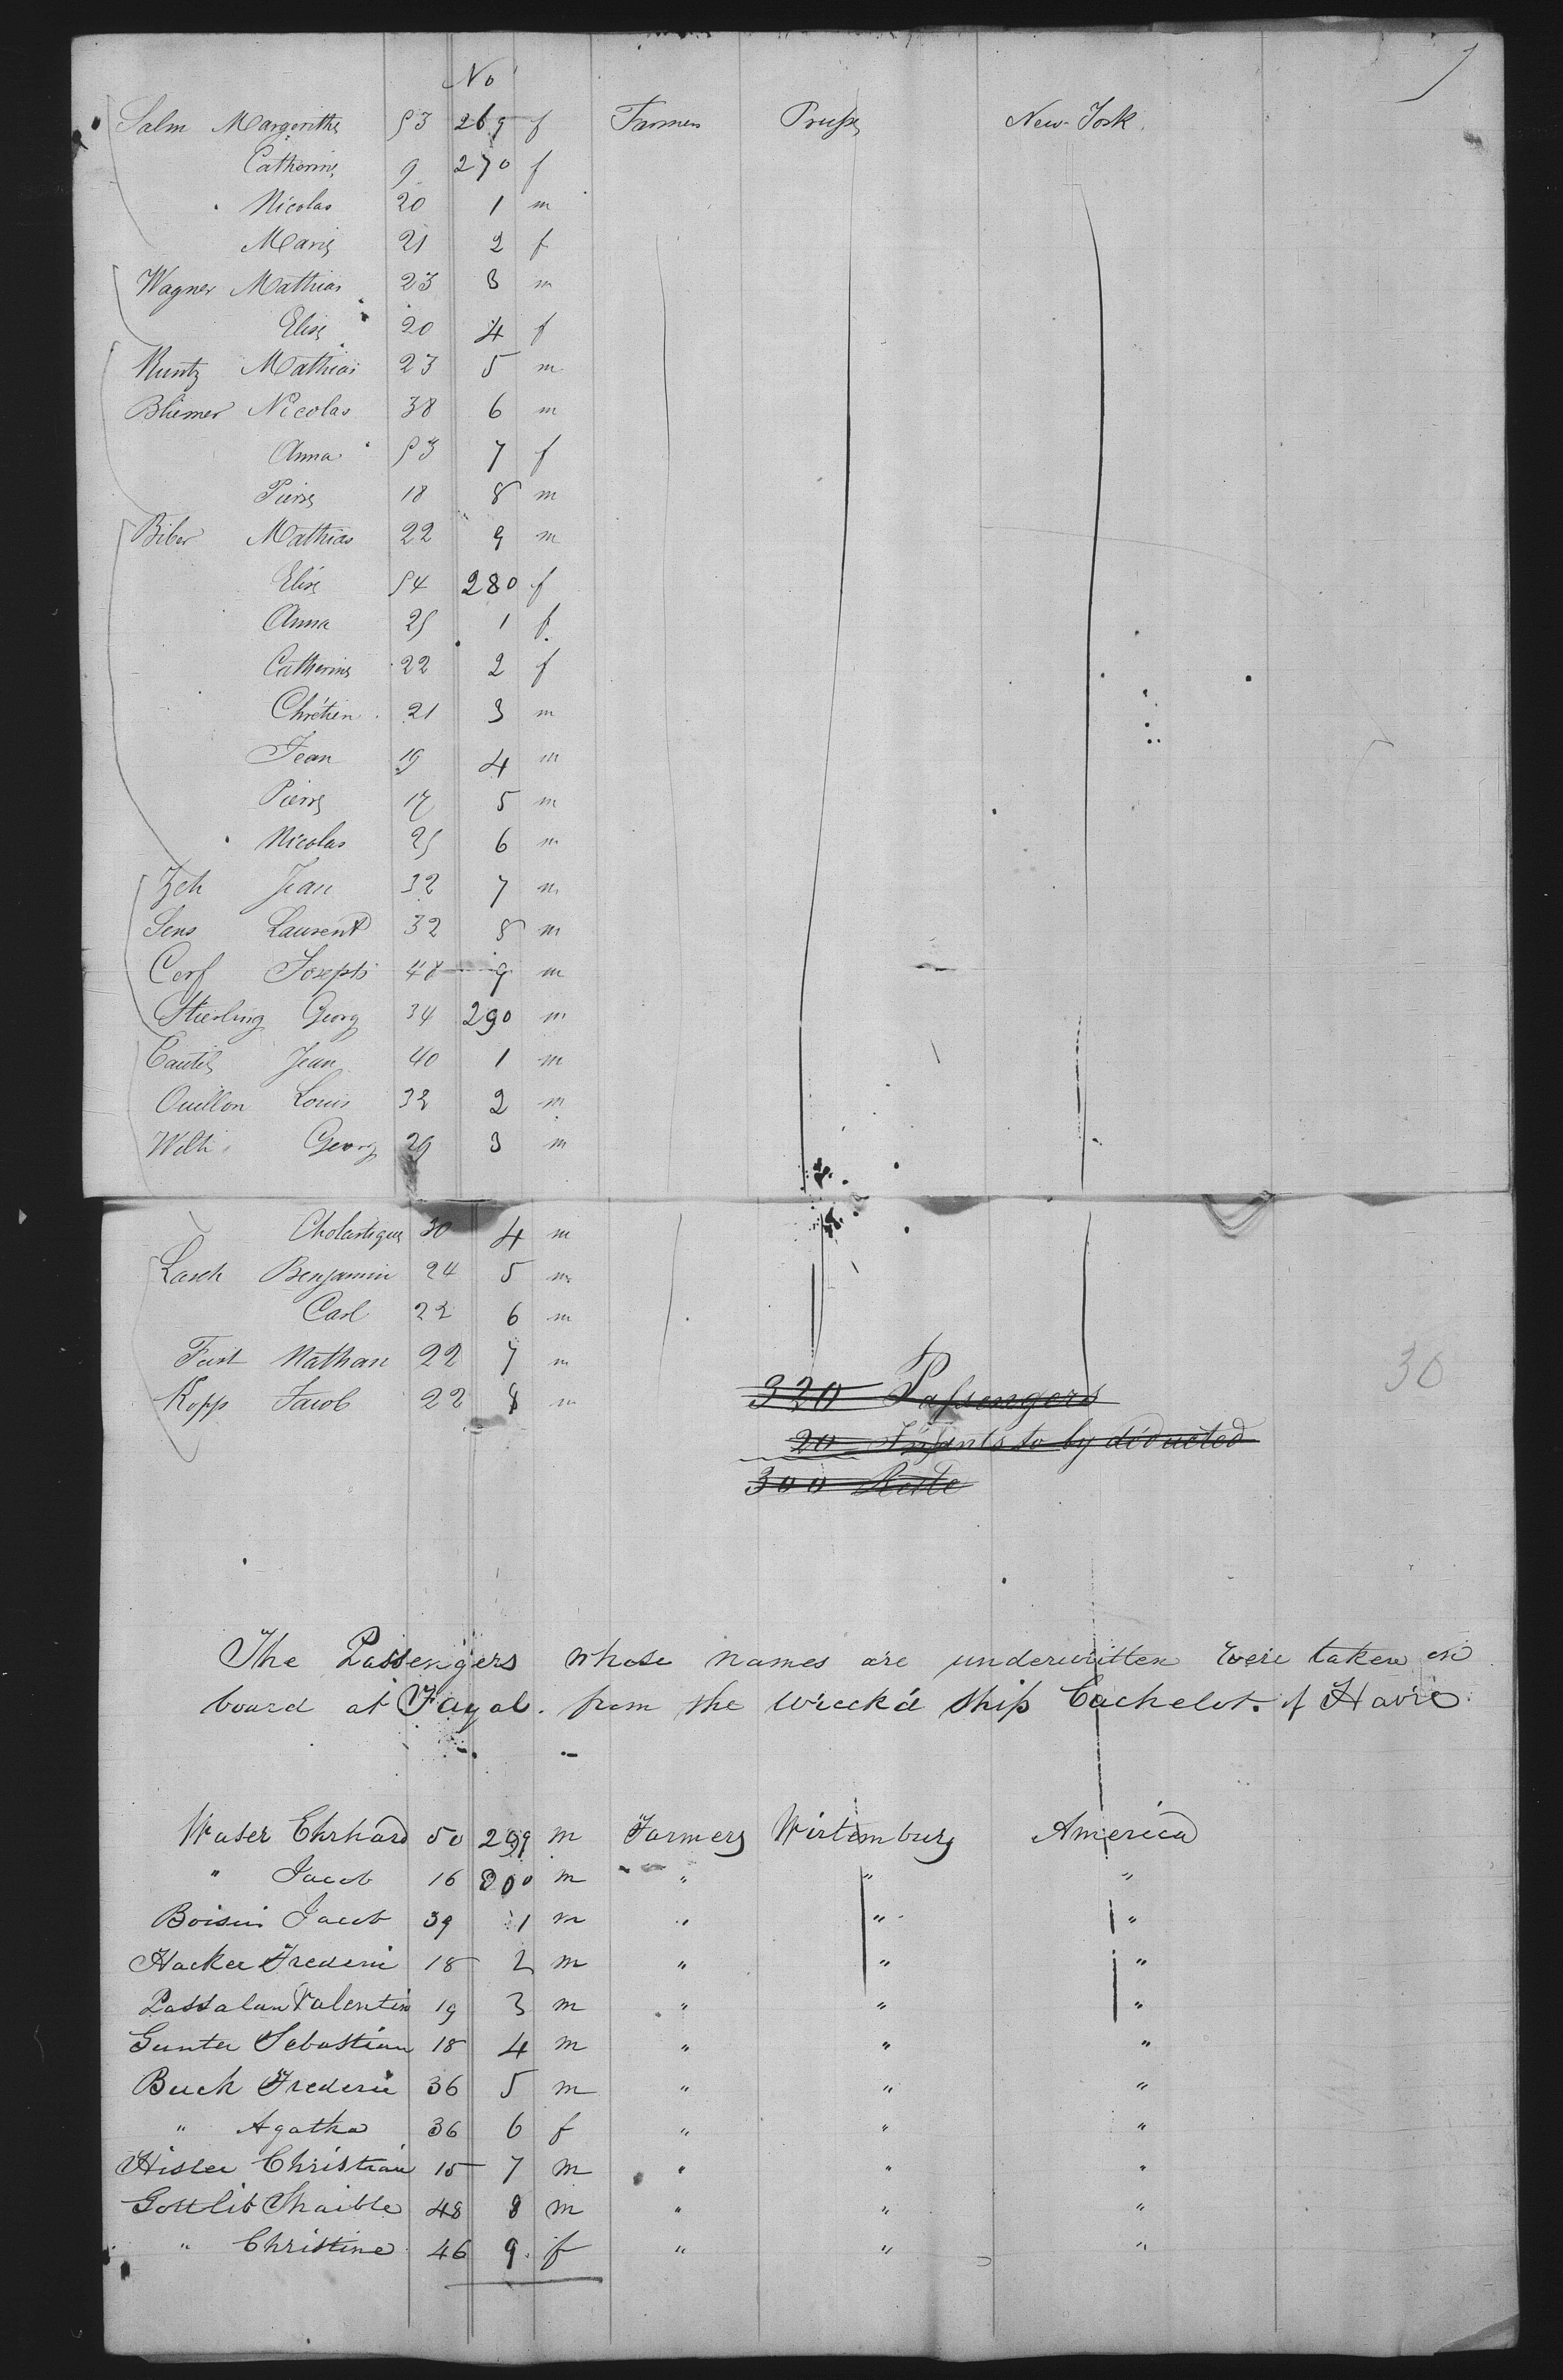 No
Salm Margarithe 53 269 f Farmer Prusse New-York
Catherine 9 270 f
Nicolas 20 1 m
Marie 21 2 f
Wagner Mathias 23 3 m
Elise 20 4 f
Kuntz Mathias 23 5 m
Bliemer Nicolas 38 6 m
Anna 53 7 f
Pierre 18 8 m
Biber Mathias 22 9 m
Elise 54 280 f
Anna 25 1 f
Catherine 22 2 f
Chrétien 21 3 m
Jean 19 4 m
Pierre 17 5 m
Nicolas 25 6 m
Zeh Jean 32 7 m
Sens Laurent 32 8 m
Cerf Joseph 48 9 m
Stierling Georg 34 290 m
Jean 40 1 m
Ouillon Louis 32 2 m
Welti Georg 29 3 m
Cholastique 30 4 m
Lasch Benjamin 24 5 m
Carl 22 6 m
Fust Nathan 22 7 m
Kopp Jacob 22 8 m
320 Passengers
20 Infants to by déducted
300 Reste
30
The Passengers whose names are underwritten were taken on
board at Fayal. from the wreck'd Ship Cachelot. of Havre
Waser Ehrhard 50 299 m Farmers Wirtemburg America
" Jacob 16 300 m " " "
Boisin Jacob 39 1 m " " "
Hacker Frederic 18 2 m " " "
Passalun Valentin 19 3 m " " "
Gunter Sebastian 18 4 m " " "
Buch Frederic 36 5 m " " "
" Agatha 36 6 f " " "
Hisler Christian 15 7 m " " "
Gottlib Shaible 48 8 m " " "
" Christine 46 9 f " " "